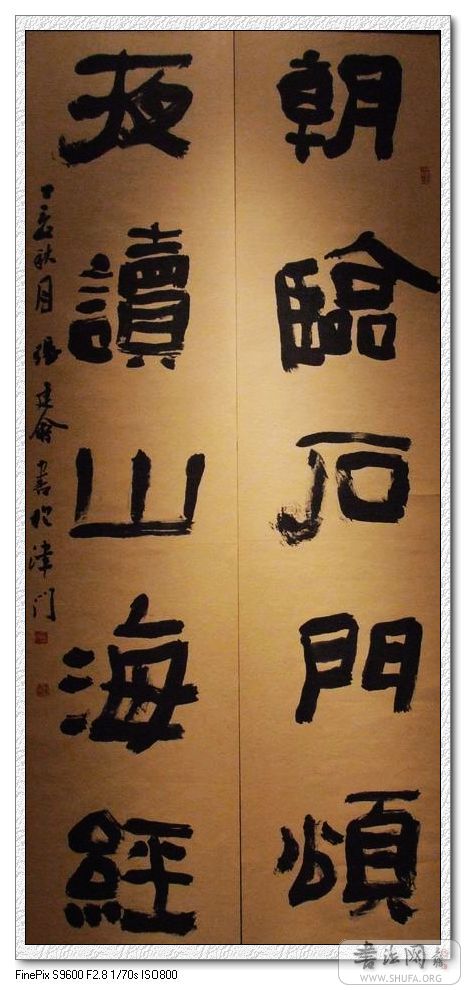 朝臨石門頌
夜讀山海經
丁亥秋月張建會書於津門
书法网
WWW.SHUFA.ORG
FinePix S9600 F2.8 1/70s ISO800